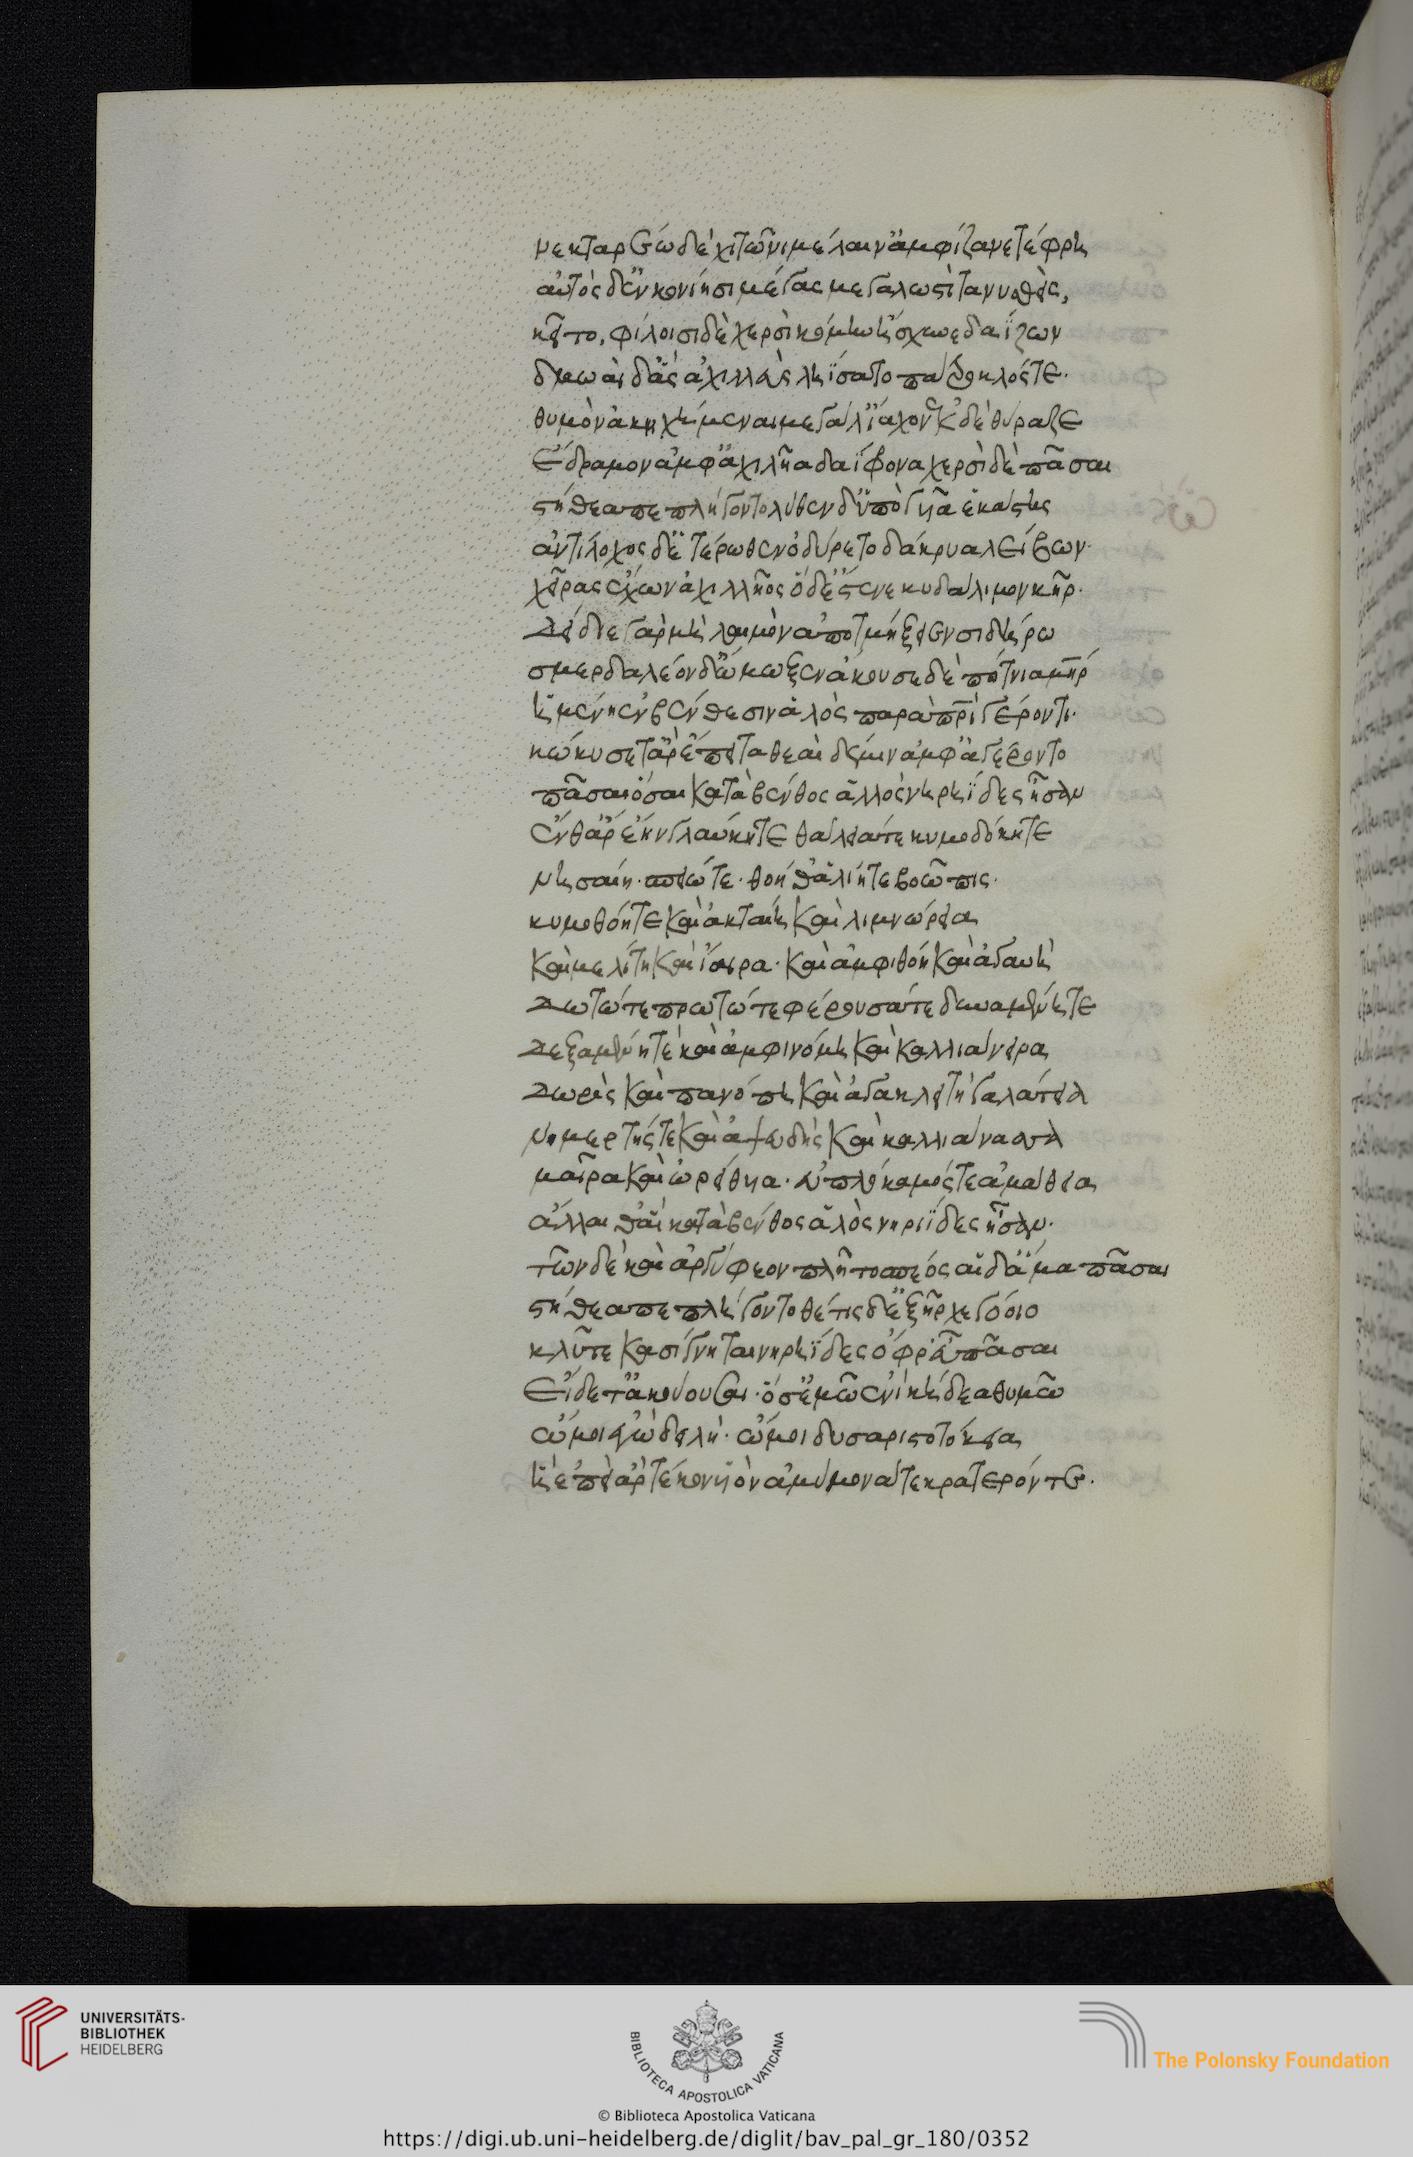 νεκταρέω δὲ χιτῶνι μέλαιν ἀμφίζανε τέφρη
αὐτὸς δ ἐν κονίησι μέγας μεγαλωστὶ τανυσθεὶς,
κεῖτο, φίλοισι δὲ χερσὶ κόμην ἤσχυνε δαΐζων
δμωαὶ δ ἃς ἀχιλλεὺς ληΐσατο πάτροκλός τε.
θυμὸν ἀκηχέμεναι μεγάλ ἴαχον ἐκ δὲ θύραζε
ἔδραμον ἀμφ ἀχιλῆα δαΐφρονα χερσὶ δὲ πᾶσαι
στήθεα πεπλήγοντο λύθεν δ ὑπὸ γυῖα ἑκάστης
ἀντίλοχος δ ἑτέρωθεν ὀδύρετο δάκρυα λείβων.
χεῖρας ἔχων ἀχιλλῆος ὁ δ ἔστενε κυδάλιμον κῆρ.
δείδιε γὰρ μὴ λαιμὸν ἀποτμήξειεν σιδήρω
σμερδαλέον δ ᾤμωξεν ἄκουσε δὲ πότνια μηρ
ἡμένη ἐν βένθεσιν ἁλὸς παρὰ πρὶ γέροντι.
κώκυσε τ ἂρ ἔπειτα θεαὶ δέ μιν ἀμφαγέροντο
πᾶσαι ὅσαι κατὰ βένθος ἁλὸς νηρηΐδες ἦσαν
ἔνθ ἄρ ἔην γλαύκη τε θάλειά τε κυμοδόκη τε
νησαίη. σπειώ τε. θόη θ ἁλίη τε βοῶπις.
κυμοθόη τε καὶ ἀκταίη καὶ λιμνώρεια
καὶ μελίτη καὶ ἴαιρα. καὶ ἀμφιθόη καὶ ἀγαυὴ
Δωτώ τε πρωτώ τε φέρουσά τε δυναμένη τε
Δεξαμένη τε καὶ ἀμφινόμη καὶ καλλιάνειρα
Δωρὶς καὶ πανόπη καὶ ἀγακλειτὴ γαλάτεια
νημερτής τε καὶ ἀψευδὴς καὶ καλλιάνασσα
μαῖρα καὶ ὠρείθυια. εὐπλόκαμός τ ἀμάθεια
ἄλλαι θ αἳ κατὰ βένθος ἁλὸς νηρηΐδες ἦσαν.
τῶν δὲ καὶ ἀργύφεον πλῆτο σπέος αἳ δ ἅμα πᾶσαι
στήθεα πεπλήγοντο θέτις δ ἐξῆρχε γόοιο
κλῦτε κασίγνηται νηρηΐδες ὄφρ εὖ πᾶσαι
εἴδετ ἀκούουσαι. ὅσ ἐμῶ ἔνι κήδεα θυμῶ
ὤμοι ἐγὼ δειλὴ. ὤμοι δυσαριστοτόκεια
ἥ ἐπεὶ ἂρ τέκον υἱὸν ἀμύμονά τε κρατερόν τε.
UNIVERSITÄTS-
BIBLIOTHEK
HEIDELBERG
BIBLIOTECA APOSTOLICA VATICANA
The Polonsky Foundation
© Biblioteca Apostolica Vaticana
https://digi.ub.uni-heidelberg.de/diglit/bav_pal_gr_180/0352